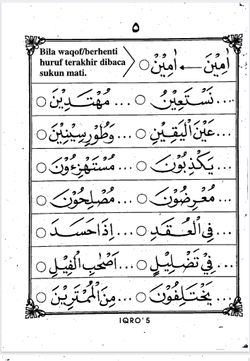 ٥
Bila waqof/berhenti
huruf terakhir dibaca
sukun mati.
اٰمِيْنَ ← اٰمِيْنْ ○
نَسْتَعِيْنُ ○ ... مُهْتَدِيْنَ ○
عَيْنَ الْيَقِيْنِ ○ ... وَطُوْرِ سِيْنِيْنَ ○
يَكْذِبُوْنَ ○ ... مُسْتَهْزِءُوْنَ ○
مُعْرِضُوْنَ ○ ... مُصْلِحُوْنَ ○
فِى الْعُقَدِ ○ ... اِذَا حَسَدَ ○
فِيْ تَضْلِيْلٍ ○ ... اَصْحٰبِ الْفِيْلِ ○
يَخْتَلِفُوْنَ ○ ... مِنَ الْمُمْتَرِيْنَ ○
IQRO' 5